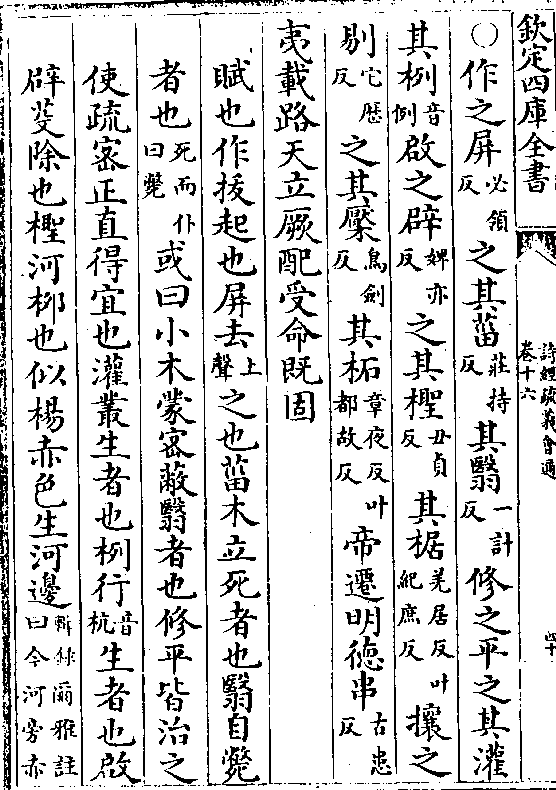 欽定四庫全書
詩經疏義會通
卷十六
四十
○作之屏必領反之其菑莊持反其翳一計反修之平之其灌
其栵音例啟之辟婢亦反之其檉丑貞反其椐羌居反叶紀庶反攘之
剔它歷反之其檿烏劍反其柘章夜反叶都故反帝遷明德串古患反
夷載路天立厥配受命既固
賦也作拔起也屏去上聲之也菑木立死者也翳自斃
者也死而仆曰斃或曰小木蒙密蔽翳者也修平皆治之
使疏密正直得宜也灌叢生者也栵行音杭生者也啟
辟芟除也檉河柳也似楊赤色生河邊輯錄爾雅註曰今河旁赤